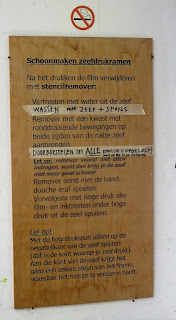 Schoonmaken zeefdrukramen
Na het drukken de film verwijderen
met stencilremover:
- Vetresten met water uit de zeef
WASSEN MET ZEEP + SPONS
- Remover met een kwast met
ronddraaiende bewegingen op
beide zijden van de natte zeef
aanbrengen.
DOORBORSTELEN TOT ALLE
Let op: remover vooral niet laten
indrogen, want dan krijg je de zeef
niet meer goed schoon!
- Remover eerst met de hand-
douche eraf spoelen.
- Vervolgens met hoge druk alle
film- en inktresten onder hoge
druk uit de zeef spuiten.
Let op!
Met de hogedrukspuit alleen op de
van de zeef spuiten
(dat is de kant waarop je niet drukt).
Aan die kant van de zeef krijgt het
gaas een zekere steun van het frame,
waardoor het minder te verduren heeft.